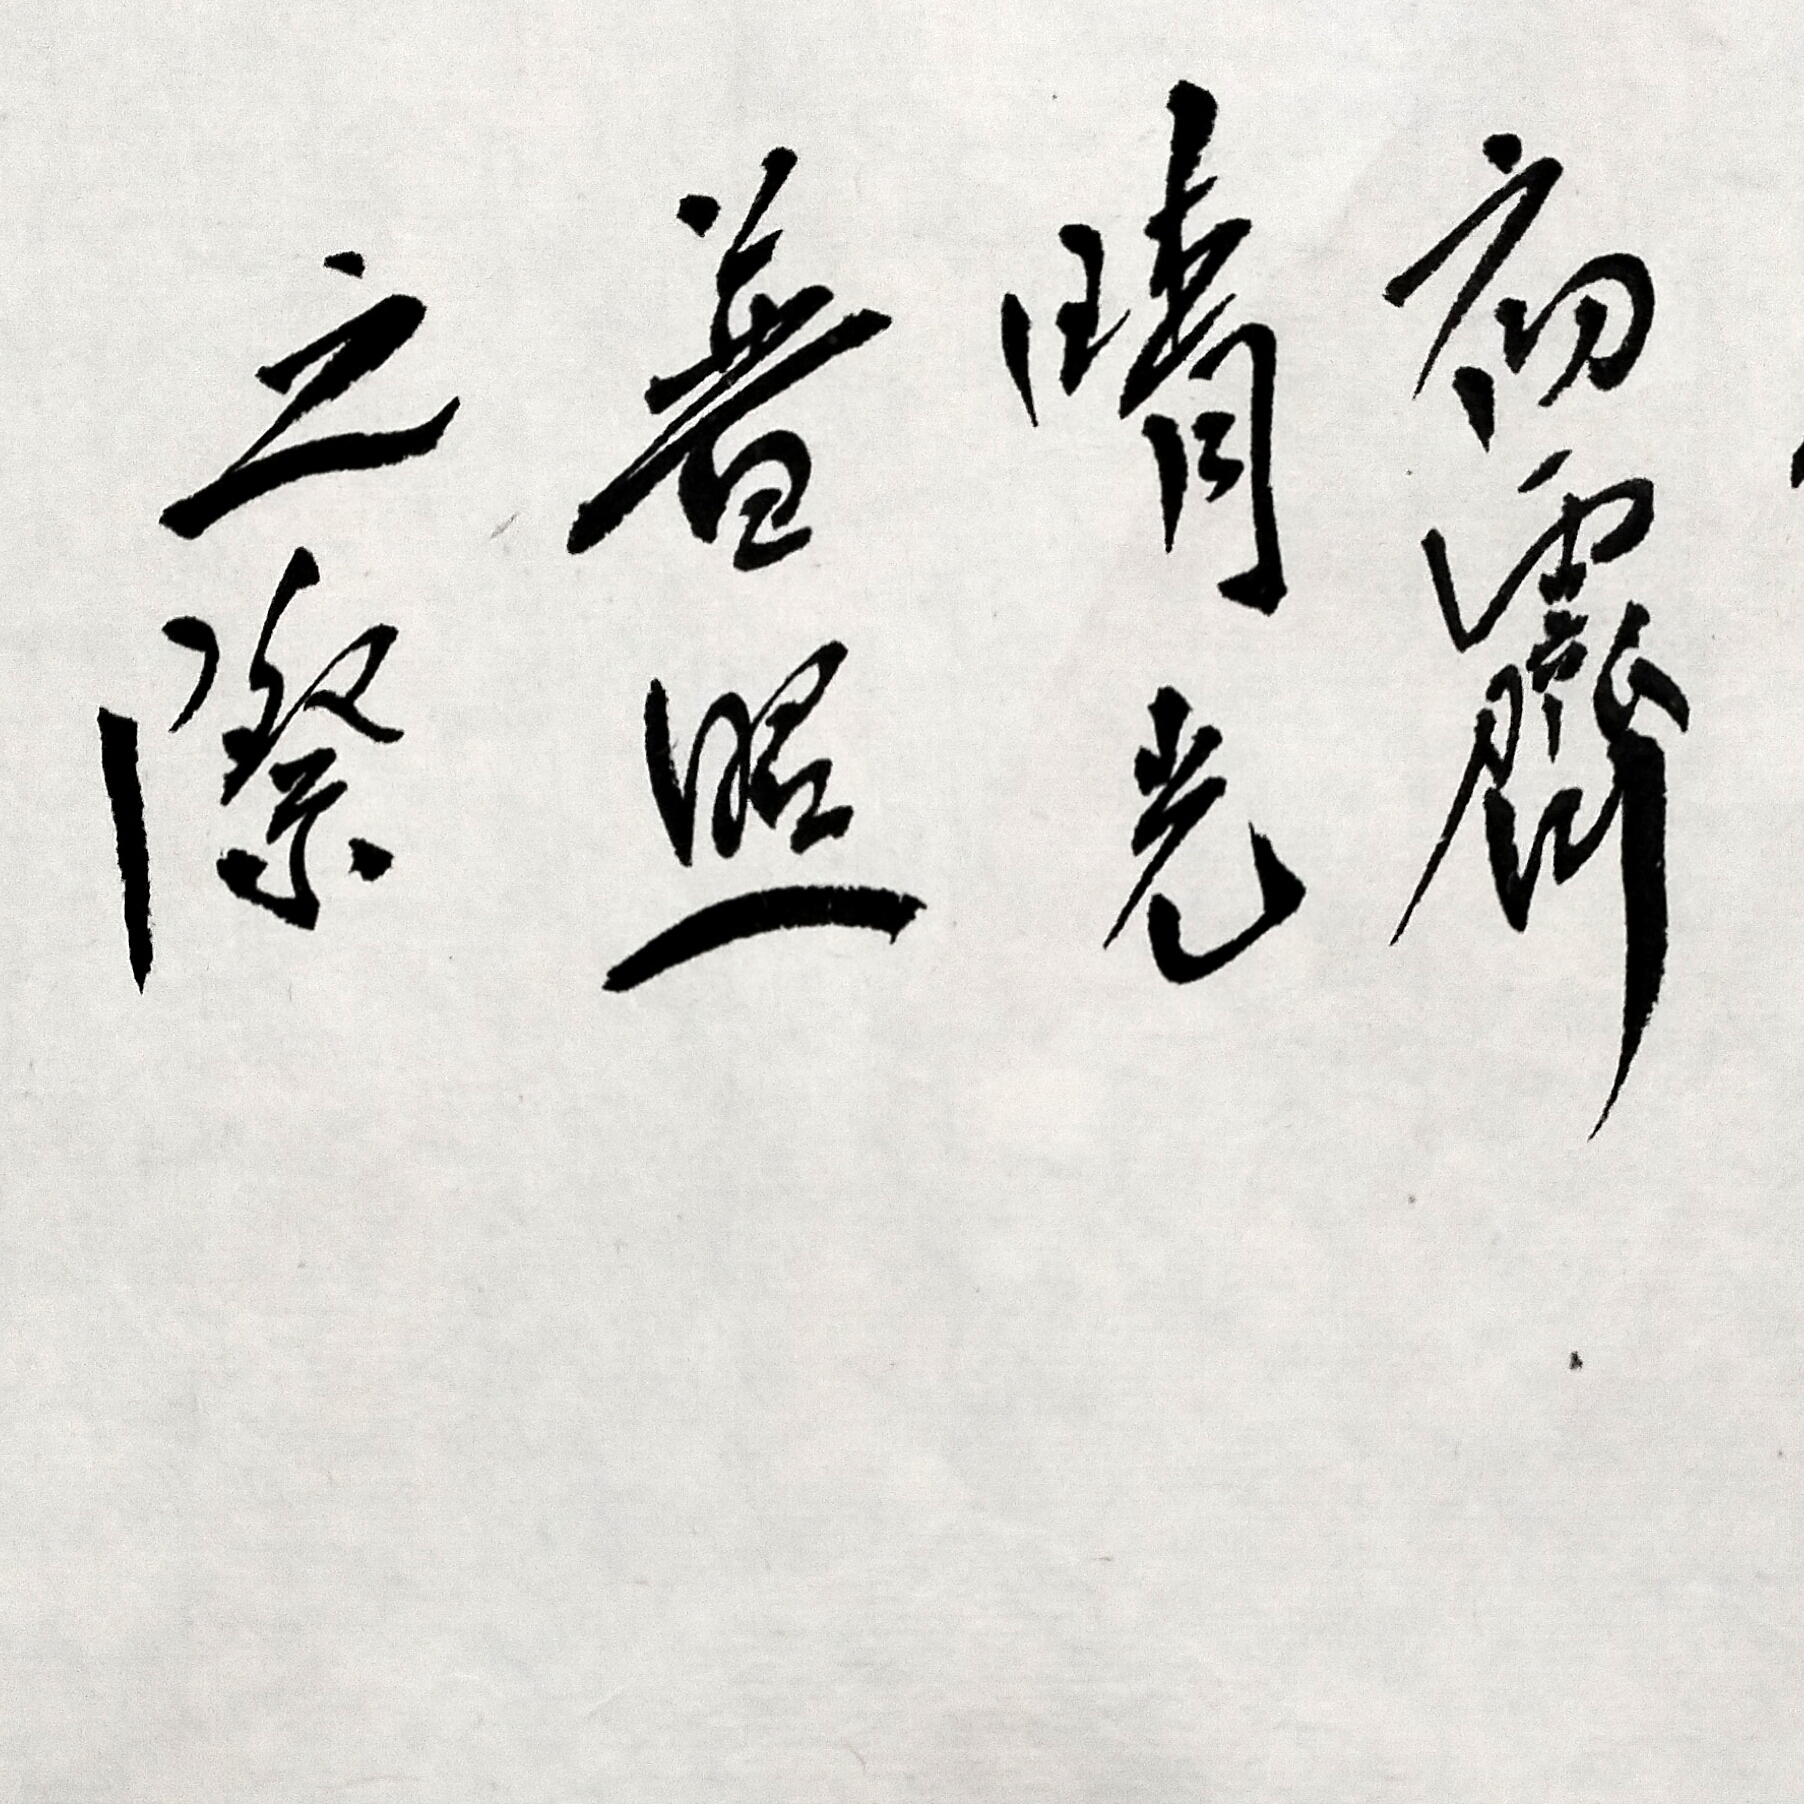 初霽
晴光
普照
之際